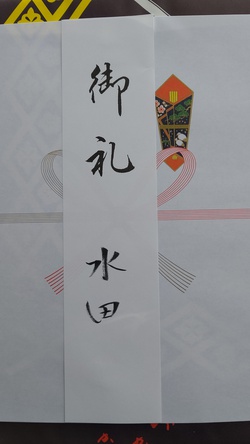 御礼
水田